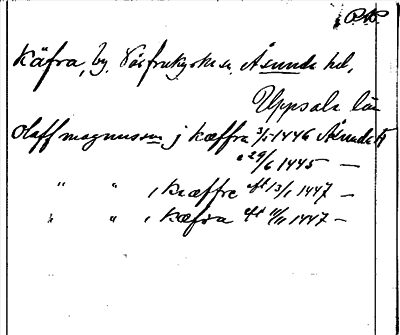 P.M.
Käfra, by, Vårfrukyrka sn, Åsunda hd,
Uppsala län
olaff magnusson j kæffra 3/5 1446 Åsunda
" 29/6 1445 —
" " , kræffre 13/1 1447 —
" " , kæfra 11/11 1447 —